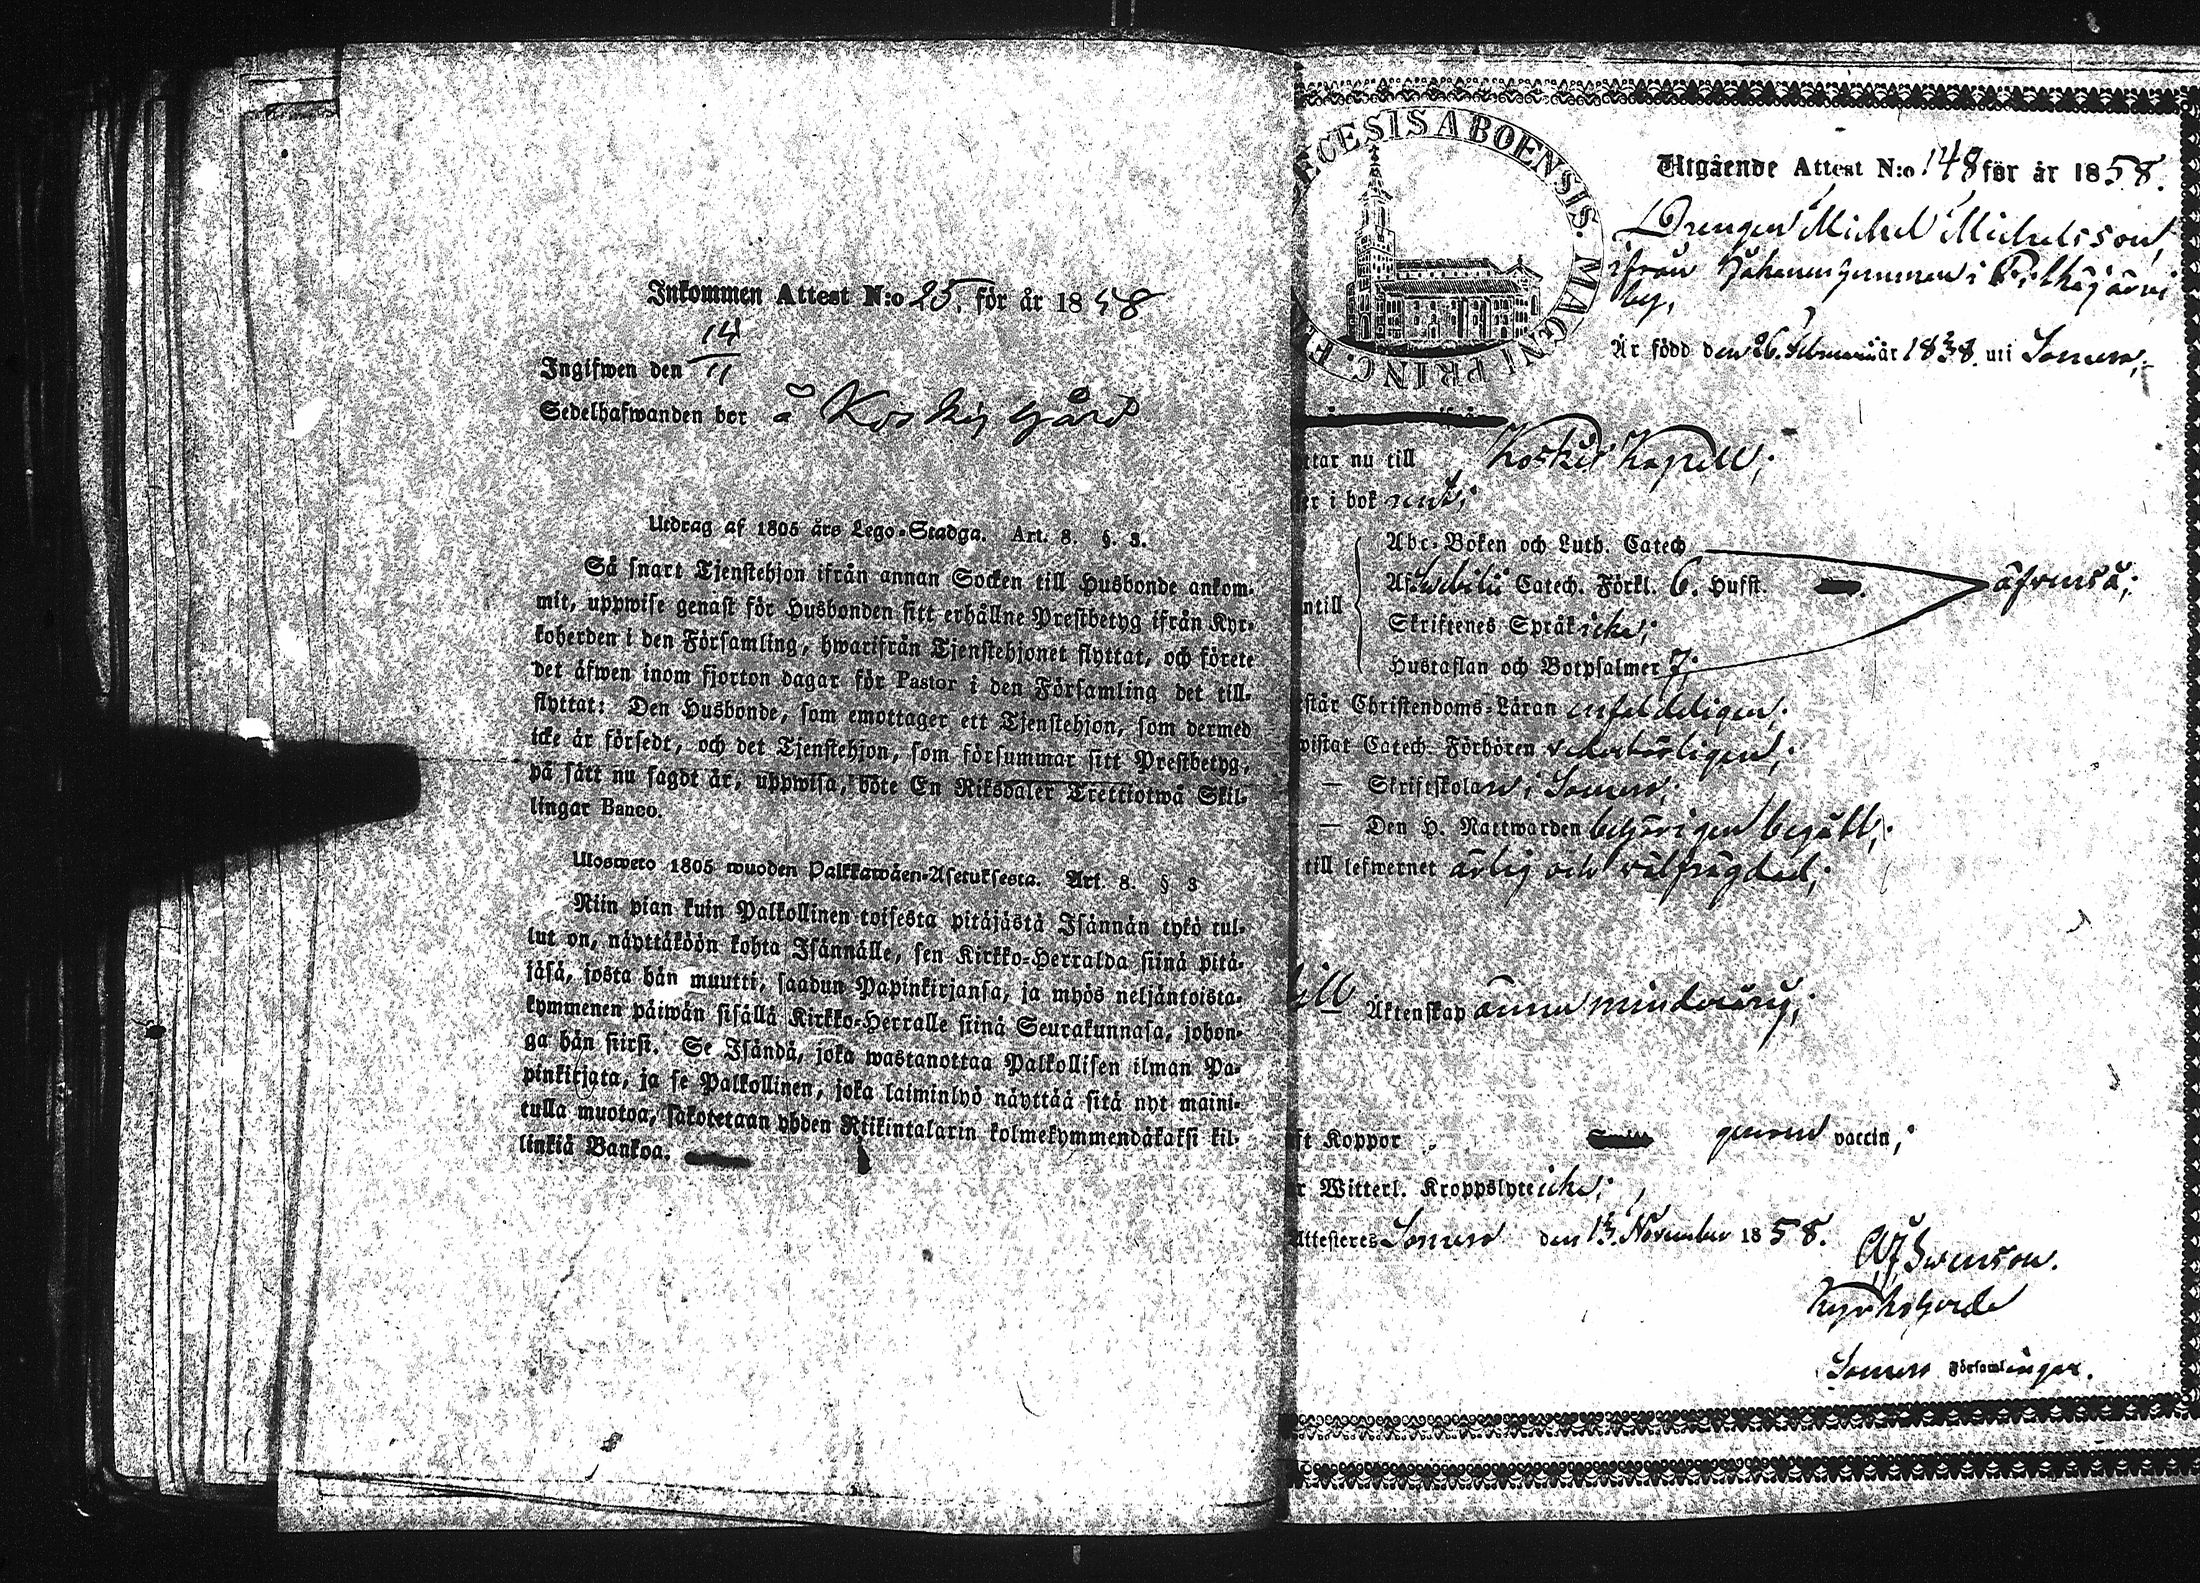 Inkommen Attest N:o 25. för år 1858
Ingifwen den 14/11
Sedelhafwanden bor å Koskis gård
Utdrag af 1805 års Lego-Stadga. Art. 8. §. 3.
Så snart Tjenstehjon ifrån annan Socken till Husbonde ankom-
mit, uppwise genast för Husbonden sitt erhållne Prestbetyg ifrån Kyr-
koherden i den Församling, hwarifrån Tjenstehjonet flyttat, och förete
det äfwen inom fjorton dagar för Pastor i den Församling det till-
flyttat: Den Husbonde, som emottager ett Tjenstehjon, som dermed
icke är försedt, och det Tjenstehjon, som försummar sitt Prestbetyg,
på sätt nu sagdt är, uppwisa, böte En Riksdaler Trettiotwå Skil-
lingar Banco.
Ulosweto 1805 wuoden Palkkawäen-Asetuksesta. Art. 8. § 3
Niin pian kuin Palkollinen toisesta pitäjästä Isännän tykö tul-
lut on, näyttäköön kohta Isännälle, sen Kirkko-Herralda siinä pitä-
jäsä, josta hän muutti, saadun Papinkirjansa, ja myös neljäntoista-
kymmenen päiwän sisällä Kirkko-Herralle siinä Seurakunnasa, johon-
ga hän siirsi. Se Isändä, joka wastanottaa Palkollisen ilman Pa-
pinkirjata, ja se Palkollinen, joka laiminlyö näyttää sitä nyt maini-
tulla muotoa, sakotetaan yhden Riikintalarin kolmekymmendäkaksi kil-
linkiä Bankoa.
ECESIS ABOENSIS. MAGNI PRINC. F
Utgående Attest N:o 148 för år 1858.
Drengen Michel Michelsson,
ifrån i Pitkäjärvi
by,
Är född den 26. Februarii år 1838. uti Somero,
ttar nu till Koskis Kapell;
er i bok rent;
Abc-Boken och Luth. Catech
Af Sebelii Catech. Förkl. 6. Hufst. äfvenså;
ntill Skriftenes Språk icke;
Hustaflan och Botpsalmer 7;
står Christendoms-Läran enfeldeligen;
wistat Catech. Förhören vederbörligen;
— Skriftskolan i Somero;
— Den H. Nattwarden behörigen begått;
till lefwernet ärlig och välfrägdad;
till Äktenskap ännu minderårig;
ft Koppor genom vaccin;
r Witterl. Kroppslyte icke;
Attesteres Somero den 13. November 1858.
A J Swenson.
Kyrkoherde
Somero Församlingar.